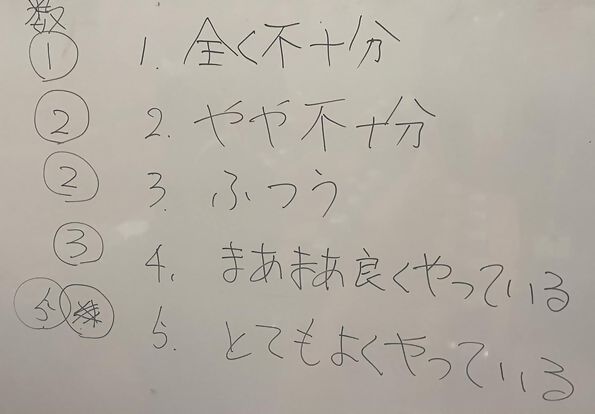 数
① 1. 全く不十分
② 2. やや不十分
② 3. ふつう
③ 4. まあまあ良くやっている
⑤ 5. とてもよくやっている